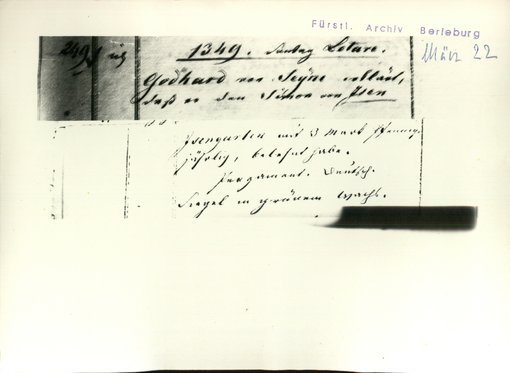 Fürstl. Archiv Berleburg
März 22
249 1349. Sontag Letare.
Godhard von Seyne erklärt,
daß er den Simon von Isen
Isengarten mit 3 Mark Pfennig
jährlich, belehnt habe.
Pergament. Deutsch.
Siegel in grünem Wachs.